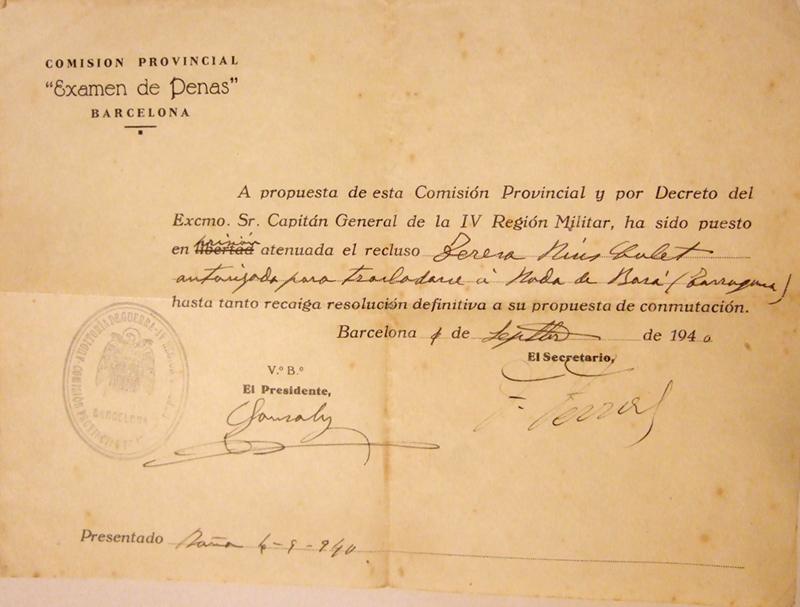 COMISION PROVINCIAL
"Examen de Penas"
BARCELONA
A propuesta de esta Comisión Provincial y por Decreto del
Excmo. Sr. Capitán General de la IV Región Militar, ha sido puesto
en libertad prisión atenuada el recluso Teresa Rius
autorizada para trasladarse á Roda de Bará (Tarragona)
hasta tanto recaiga resolución definitiva a su propuesta de conmutación.
Barcelona de Septbre de 1940
El Secretario,
V.º B.º
El Presidente,
F. Ferrer
AUDITORIA DE GUERRA
BARCELONA
Presentado 6-9-940